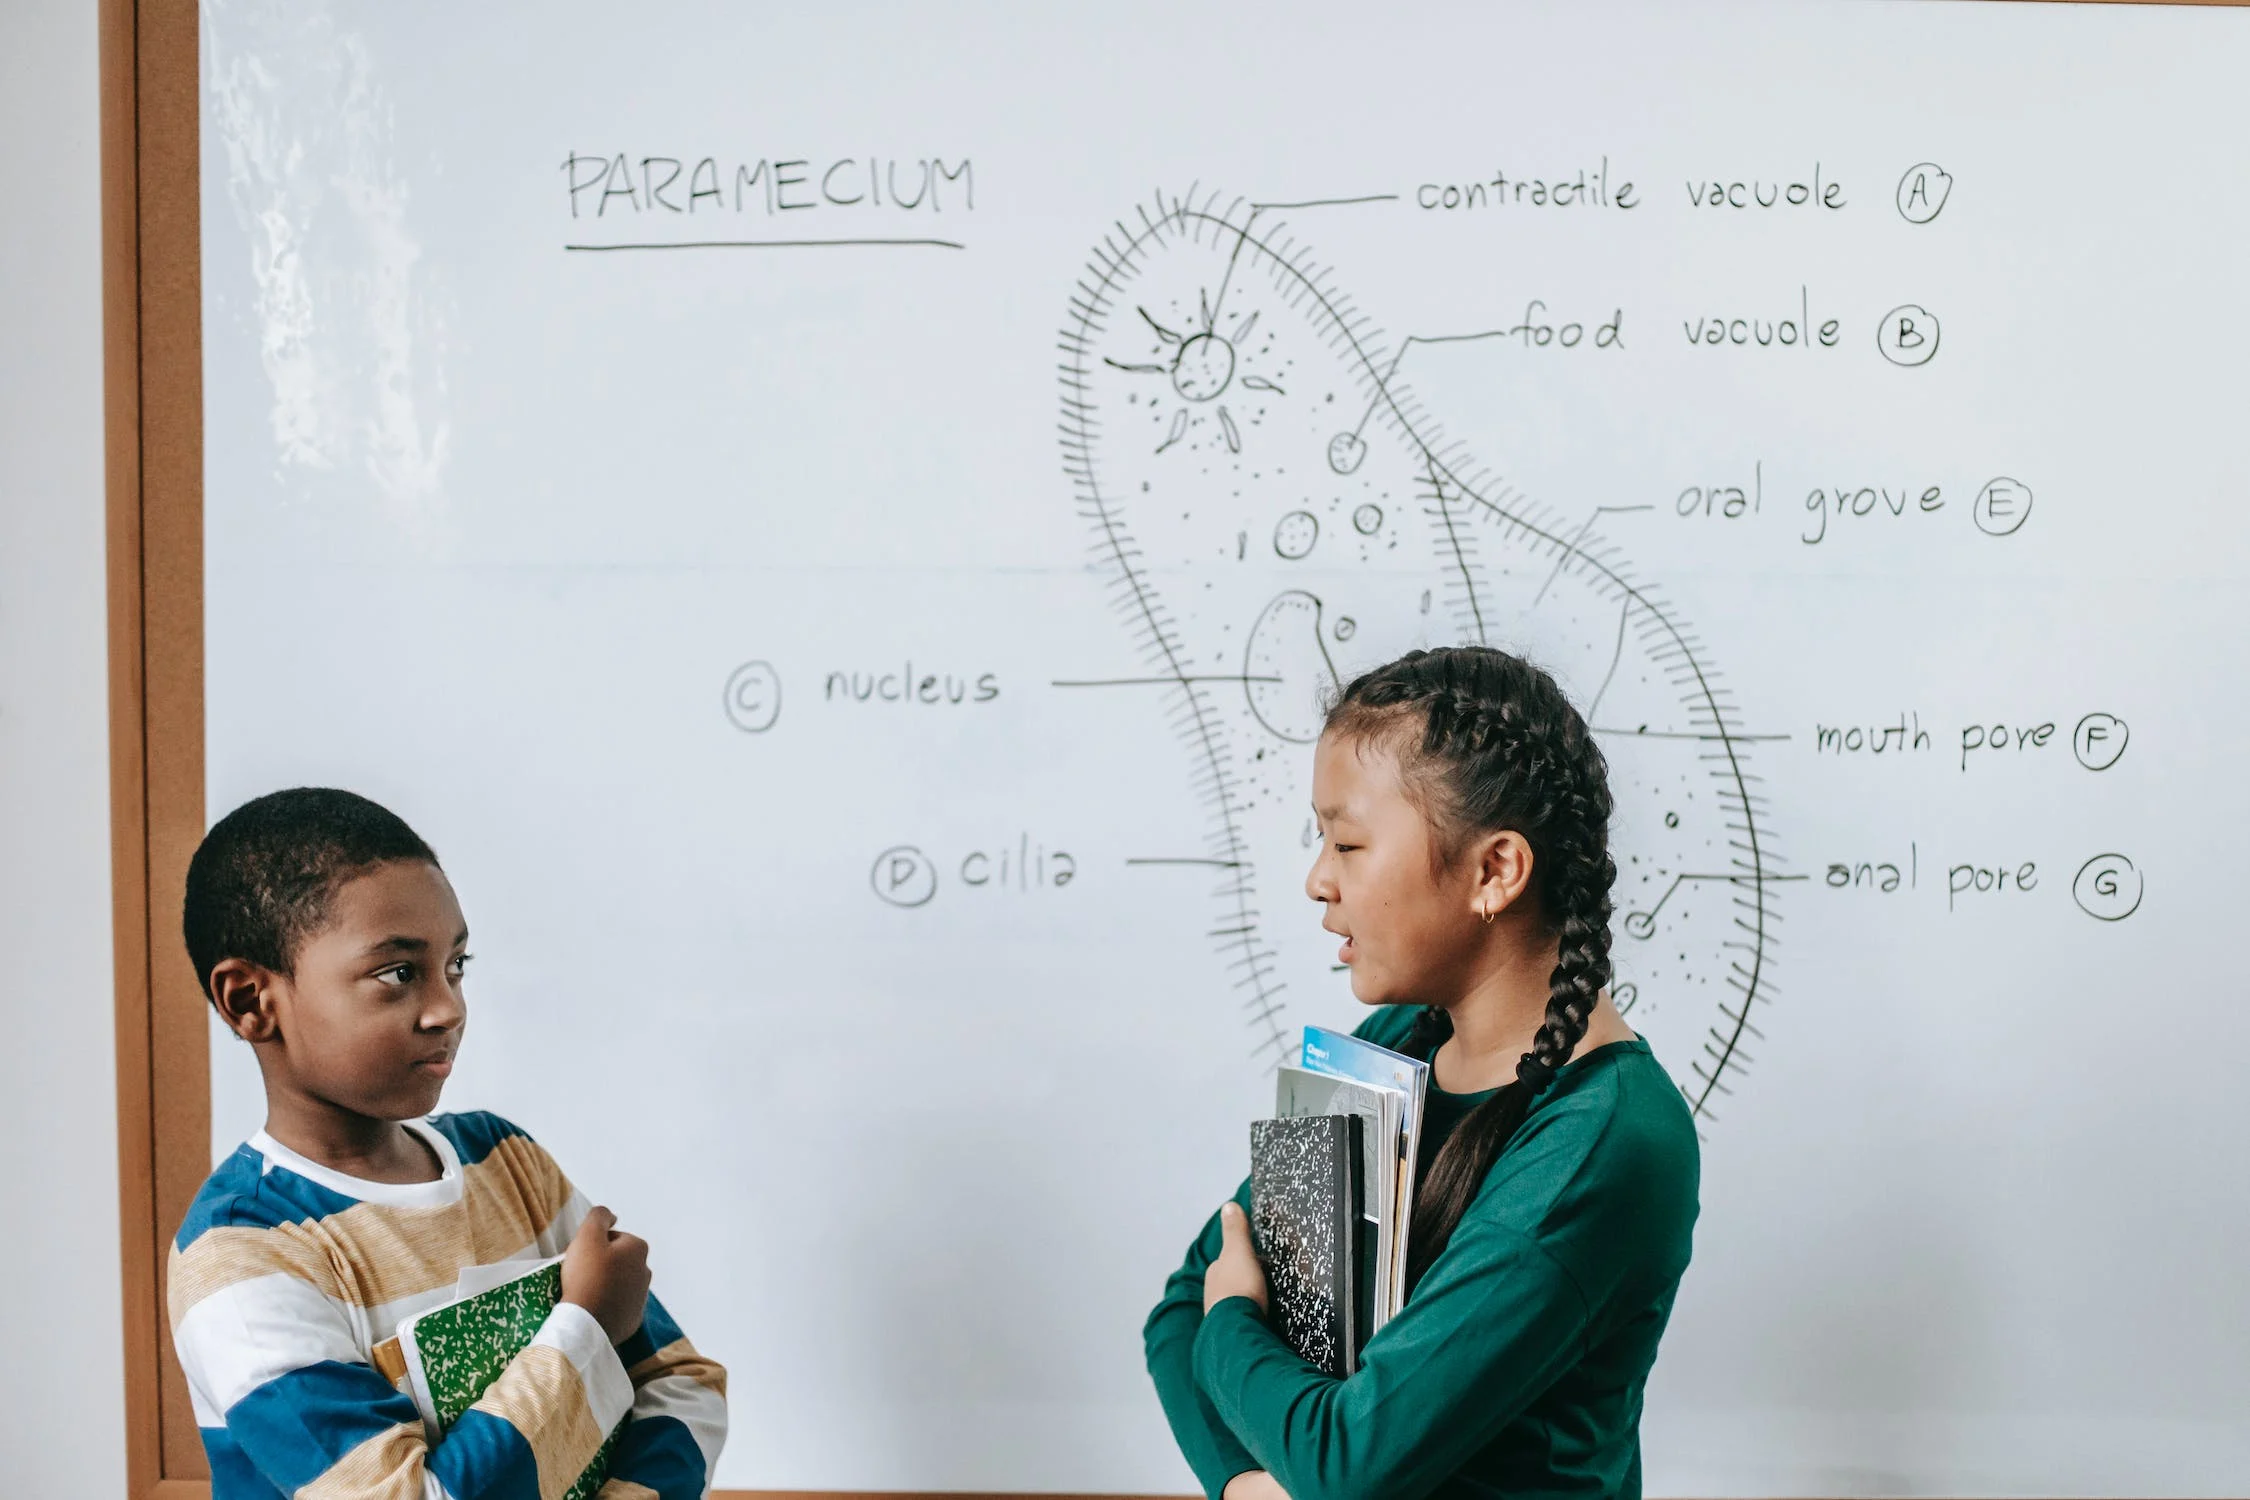 PARAMECIUM
contractile vacuole A
food vacuole B
oral grove E
C nucleus
mouth pore F
D cilia
anal pore G
Chapter 1